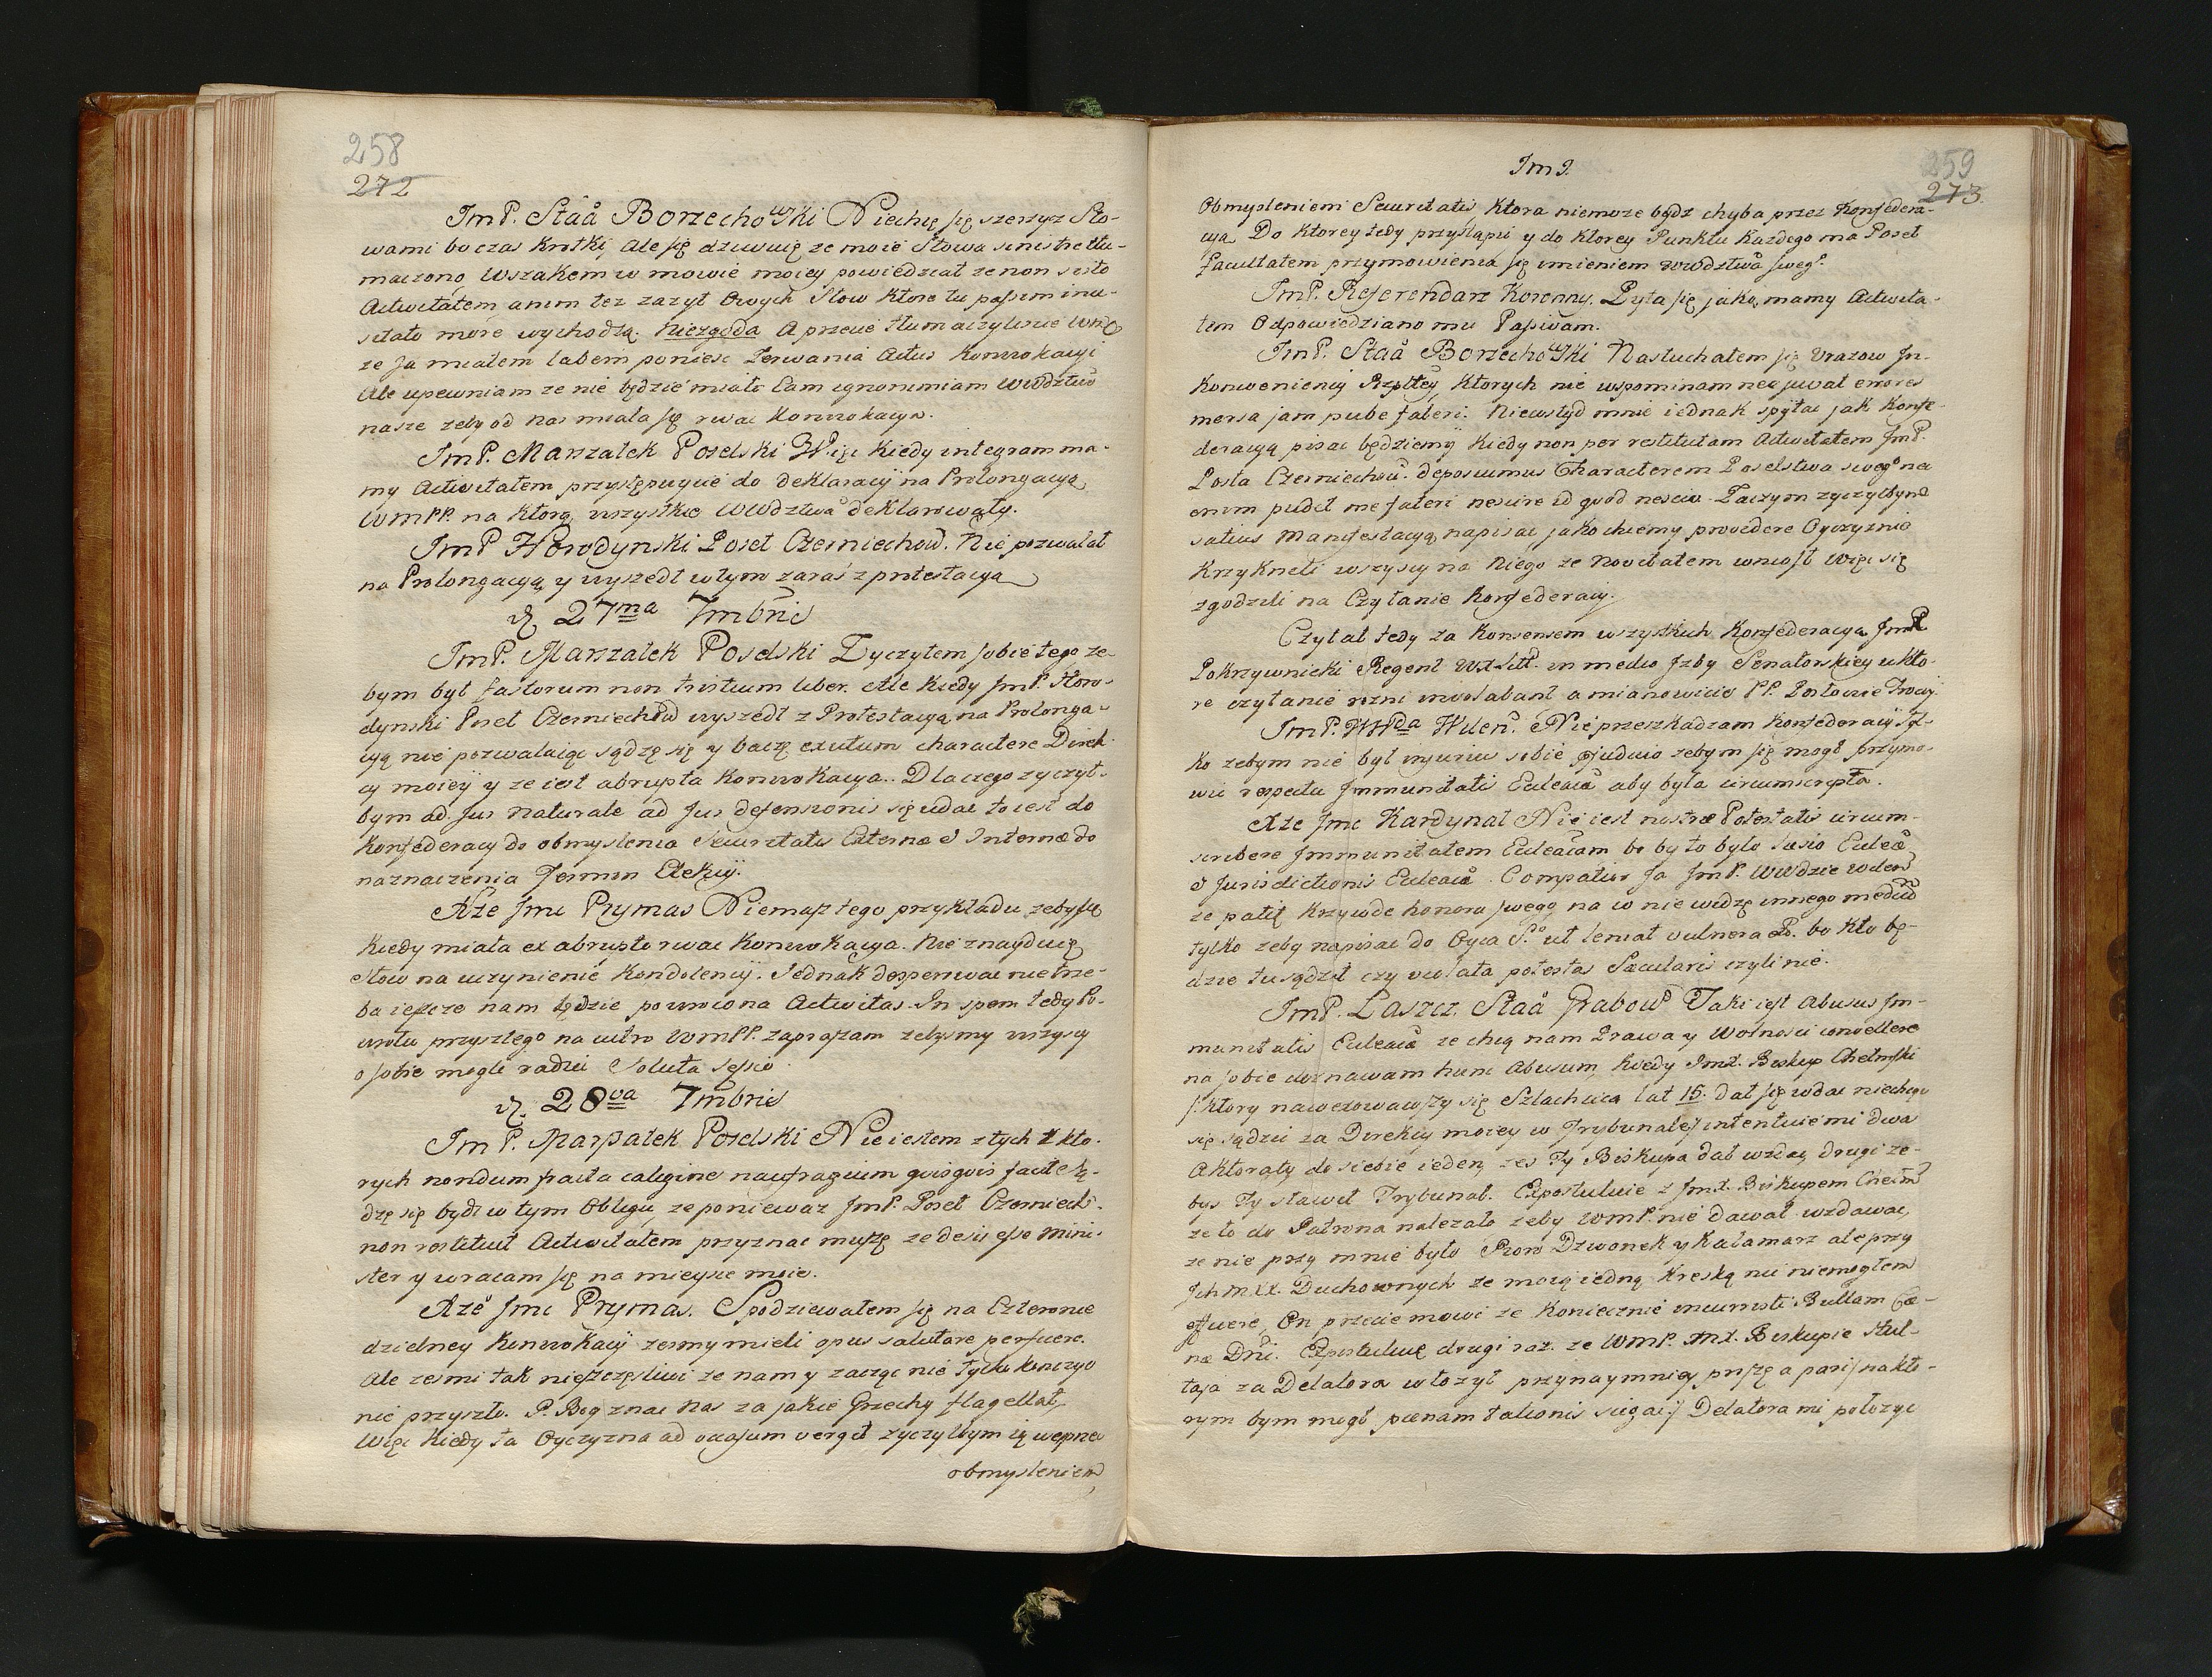 258
272
ImP. Stãa Borzechowski Niechcę się szerzyz Sło-
wami bo czas krotki, ale się dziwuię ze moie słowa sinistre tłu-
maczono, Wszakem w mowie moiey powiedział ze non sisto
Activitatem anim tez zazył owych słow ktore tu passim inu-
sitato more wychodzą. Niezgoda A przecie tłumaczyliscie
ze Ja miałem labem poniesc Zerwania Actus Konwokacyi
Ale upewniam ze nie będzie miało Eam ignominiam Wwdztwo
nasze zeby od nas miała się rwac Konwokacya.
ImP. Marszałek Poselski Więc kiedy integram ma-
my Activitatem przystępuycie do deklaracÿ na Prolongacyą
WmPP. na ktorą wszystkie Wwdztwa deklarowały.
ImP Horodynski Poseł Czerniechow. Nie pozwalał
na Prolongacyą y wyszedł w tym zaras z protestacyą
d. 27ma 7mbris
ImP. Marszałek Poselski Zyczyłem sobie tego ze-
bym był fastorum non tristium liber. Ale kiedy ImP. Horo-
dynski Poseł Czerniechow wyszedł z Protestacyą na Prolonga-
cyą nie pozwalaiąc sądzę się y baczę exutum charactere Direk
cy moieÿ y ze iest abrupta Konwokacya. Dlaczego zyczył-
bym ad Jus naturale ad Jus defensionis się udac to iest do
Konfederacy do obmyslenia Securitatis Externæ & Internæ do
naznaczenia Termin Elekcÿ.
Xze Jmc Prymas Niemasz tego przykładu zeby się
kiedy miała ex abrupto rwac Konwokacya. Nie znayduię
słow na uczynienie Kondolencÿ. Jednak desperowac nie trze-
ba ieszcze nam będzie powrocona Activitas. In spem tedy Po-
wrotu przyszłego na iutro WmPP. zapraszam zebysmy wszyscy
o sobie mogli radzic Soluta sessio.
d. 28va 7mbris
ImP. Marszałek Poselski Nie iestem z tych z kto-
rych nondum fracta caligine naufragium quisquis facile Są-
dzę się bydz w tym Obligu, ze poniewaz ImP. Poseł Czerniech.
non restituit Activitatem przyznac muszę ze desii esse Mini-
ster y wracam się na mieysce moie.
Xze Jmc Prymas. Spodziewałem się na Czteronie
dzielney Konwokacÿ zesmy mieli opus salutare perficere.
Ale zesmi tak nieszczęsliwi ze nam y zacząc nie tylko konczyc
nie przyszło. P. Bog znac nas za jakie Grzechy flagellat,
Więc kiedy ta Oyczyzna ad occasum vergit zyczyłbym ią wesprzec
obmysleniem

ImP.
259
273.
Obmysleniem Securitatis, ktora niemoze bydz chyba przez Konfedera-
cyą Do ktorey tedy przystąpic y do ktorey Punktu kazdego ma Poseł
Facultatem przymowienia się imieniem wwodztwa swego.
ImP. Referendarz Koronny. Pyta się jaką mamy Activita-
tem Odpowiedziano mu Passivam.
ImP. Stãa Borzechowski Nasłuchałem się Urazow In-
konwenienciÿ Rzpltey, ktorych nie wspominam nec juvat errores
mersa jam pube fateri. Niewstyd mnie iednak spytac jak Konfe-
deracyą pisac będziemy kiedy non per restitutam Activitatem ImP.
Posła Czerniechow. deposuimus Characterem Poselstwa swego nec
enim pudet me fateri nescire id quod nescio. Zaczym zyczyłbym
satius Manifestacyą napisac jako chcemy providere Oyczyznie
Krzykneli wszyscy na niego ze Novitatem wniosł Więc się
zgodzili na Czytanie Konfederacÿ.
Czytał tedy za konsensem wszystkich Konfederacyą ImP
Pokrzywnicki Regent in medio Izby Senatorskiey w kto-
re czytanie rozni involabant a mianowicie PP. Posłowie Trocc͠y.
ImP. WWda Wilen. Nie przeszkadzam Konfederacÿ tyl-
ko zebym nie był injurius sobie judicio zebym się mogł przymo-
wic respectu Immunitatis Eccleaæ aby była circumscripta.
Xze Jmc Kardynał Nie iest nostræ Potestatis circum-
scribere Immunitatem Eccleacam bo by to było læsio Eccleæ
& Jurisdictionis Eccleacæ. Compatior Ja ImP. Wwdzie Wilen
ze patit krzywde honoru swego, na co nie widzę innego medium
tylko zeby napisac do Oyca S.o ut leniat vulnera bo kto bę-
dzie tu sądził czy violata potestas Sæcularis czyli nie.
ImP. Łaszcz Stãa Grabow Taki iest Abusus Im-
munitatis Eccleacæ ze chcą nam Prawa y Wolnosci convellere
na sobie doznawam hunc Abusum, kiedy ImX. Biskup Chełmski
/: ktory nawizowawszy się Szlachcica lat 15. dał się wdac niechcąc
się sądzic za Direkcy moiey w Trybunale :/ intentuie mi dwa
Aktoraty do siebie ieden zes Ty Biskupa dał wzdac, drugi ze-
bys Ty stawił Trybunał. Expostuluie z ImX. Biskupem Chełm
ze to do Patrona nalezało zeby WmP. nie dawał wzdawac,
ze nie przy mnie było Pioro Dzwonek y Kałamarz ale przy
IchmXX. Duchownych ze moią iedną kreską nic niemogłem
efficere, On przecie mowi ze koniecznie incurristi Bullam Cæ-
næ Dni. Expostuluię drugi raz. ze WmP. mX. Biskupie Hul-
taja za Delatora włozył przynaymniey proszę a pari /: na kto-
rym bym mogł pœnam talionis siegac :/ Delatora mi połozyc